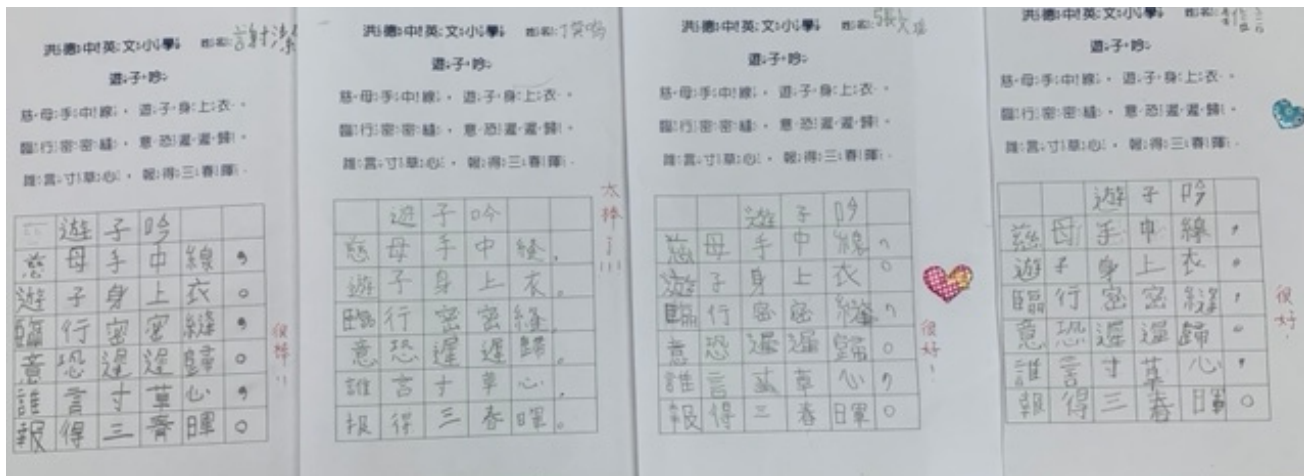 洪德中英文小學 姓名:謝潔
遊子吟
慈母手中線, 遊子身上衣。
臨行密密縫, 意恐遲遲歸。
誰言寸草心, 報得三春暉。
遊子吟
慈母手中線,
遊子身上衣。
臨行密密縫,
意恐遲遲歸。
誰言寸草心,
報得三春暉。
很棒!!
洪德中英文小學 姓名:
遊子吟
慈母手中線, 遊子身上衣。
臨行密密縫, 意恐遲遲歸。
誰言寸草心, 報得三春暉。
太棒了!!!
遊子吟
慈母手中線,
遊子身上衣。
臨行密密縫,
意恐遲遲歸。
誰言寸草心,
報得三春暉。
洪德中英文小學 姓名:張
遊子吟
慈母手中線, 遊子身上衣。
臨行密密縫, 意恐遲遲歸。
誰言寸草心, 報得三春暉。
遊子吟
慈母手中線,
遊子身上衣。
臨行密密縫,
意恐遲遲歸。
誰言寸草心,
報得三春暉。
很好!
洪德中英文小學 姓名:
遊子吟
慈母手中線, 遊子身上衣。
臨行密密縫, 意恐遲遲歸。
誰言寸草心, 報得三春暉。
遊子吟
慈母手中線,
遊子身上衣。
臨行密密縫,
意恐遲遲歸。
誰言寸草心,
報得三春暉。
很好!